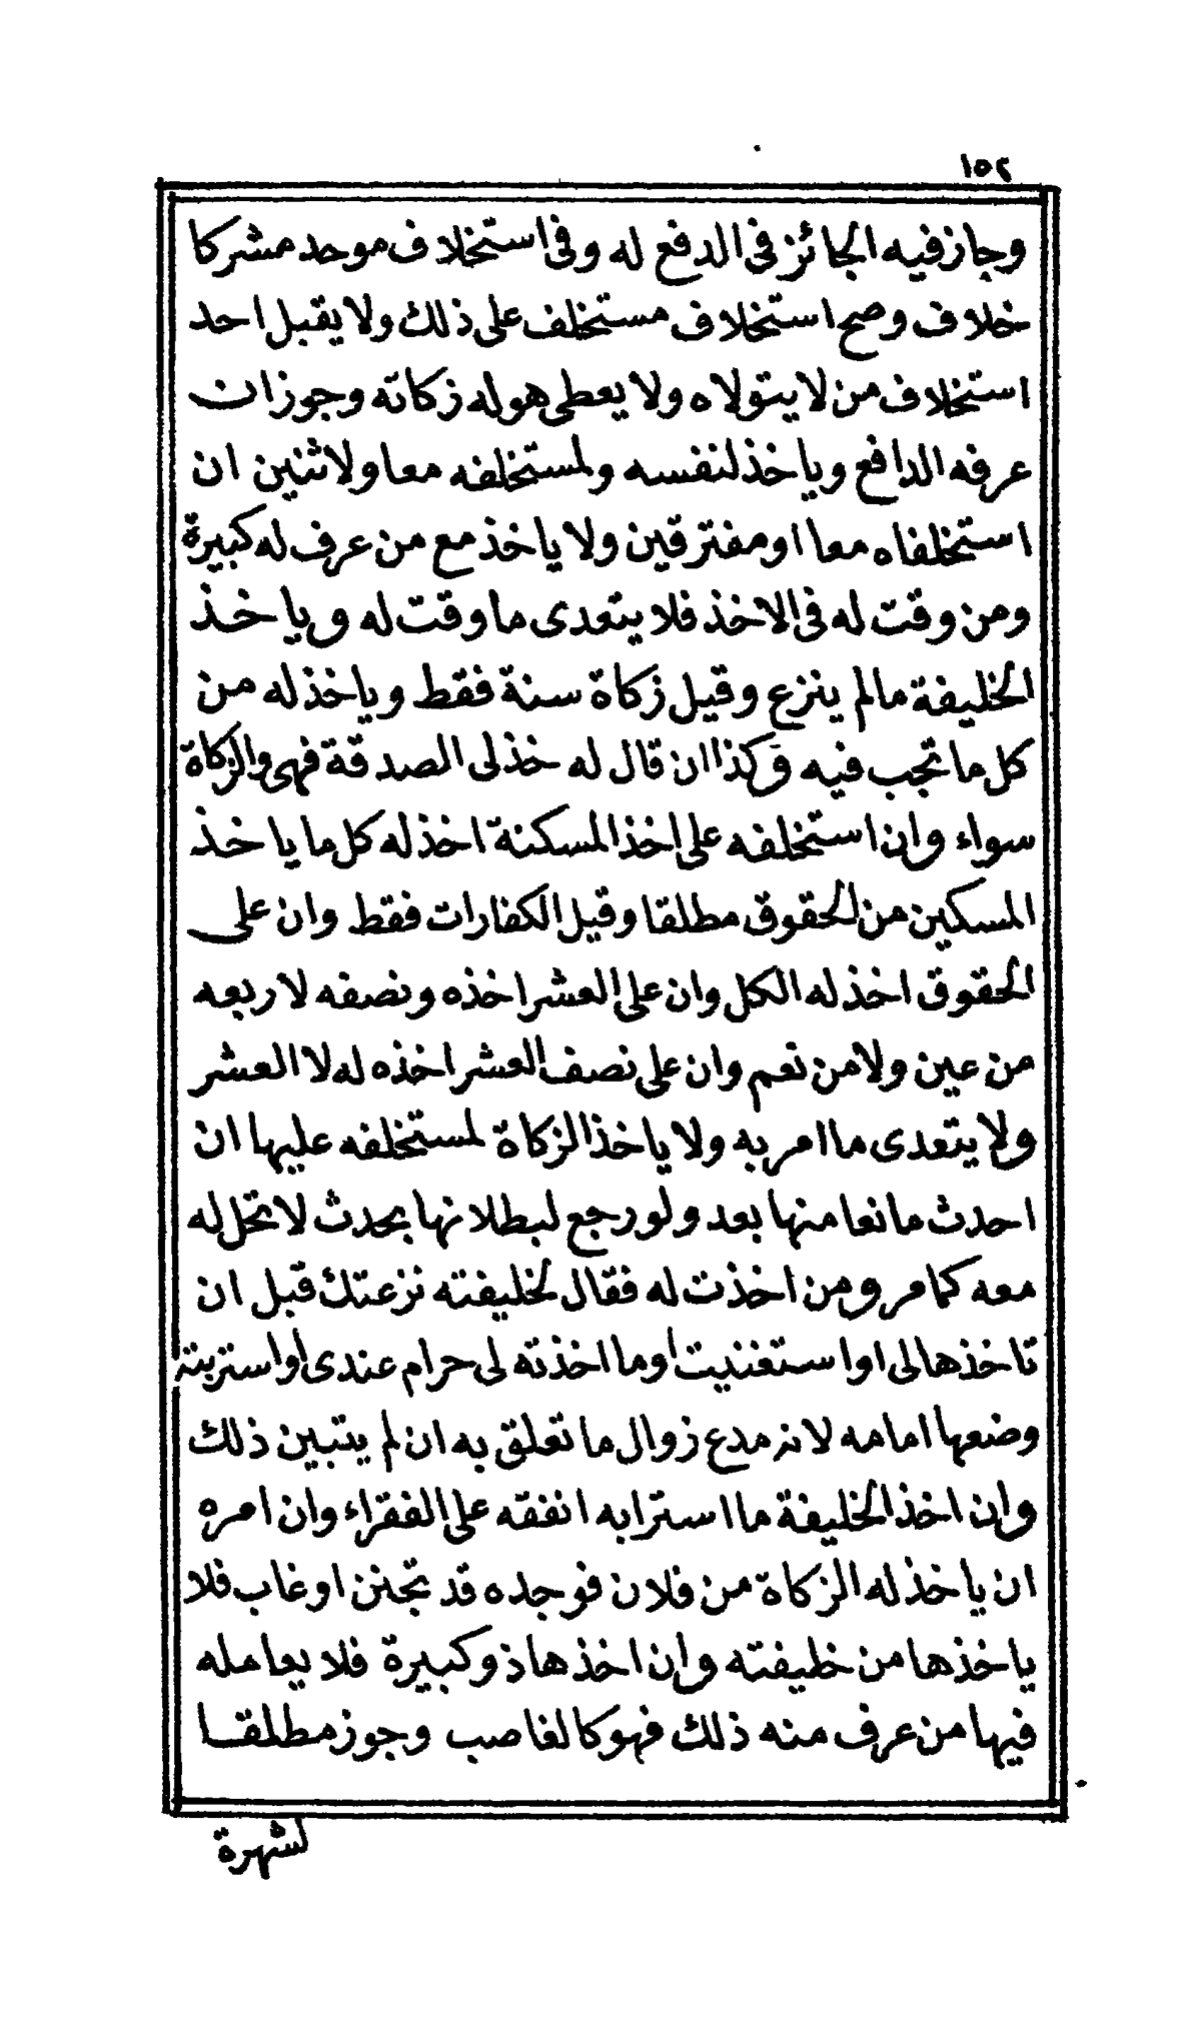 ١٥٢
وجاز فيه الجائز في الدفع له وفي استخلاف موحد مشركا
خلاف وصح استخلاف مستخلف على ذلك ولا يقبل احد
استخلاف من لا يتولاه ولا يعطى هوله زكاته وجوز ان
عرفه الدافع وياخذ لنفسه ولمستخلفه معا ولاثنين ان
استخلفاه معا او مفترقين ولا ياخذ مع من عرف له كبيرة
ومن وقت له في الاخذ فلا يتعدى ما وقت له وياخذ
الخليفة مالم ينزع وقيل زكاة سنة فقط وياخذ له من
كل ما تجب فيه وكذا ان قال له خذ لى الصدقة فهى والزكاة
سواء وان استخلفه على اخذ المسكنة اخذ له كل ما ياخذ
المسكين من الحقوق مطلقا وقيل الكفارات فقط وان على
الحقوق اخذ له الكل وان على العشر اخذه ونصفه لا ربعه
من عين ولا من نعم وان على نصف العشر اخذه له لا العشر
ولا يتعدى ما امر به ولا ياخذ الزكاة لمستخلفه عليها ان
احدث مانعا منها بعد ولو رجع لبطلانها بحدث لا تحل له
معه كما مر ومن اخذت له فقال لخليفته نزعتك قبل ان
تاخذها لى او استغنيت او ما اخذته لى حرام عندى او استربته
وضعها امامه لانه مدع زوال ما تعلق به ان لم يتبين ذلك
وان اخذ الخليفة ما استرابه انفقه على الفقراء وان امره
ان ياخذ له الزكاة من فلان فوجده قد تجنن او غاب فلا
ياخذها من خليفته وان اخذها ذو كبيرة فلا يعامله
فيها من عرف منه ذلك فهو كالغاصب وجوز مطلقا
لشهرة